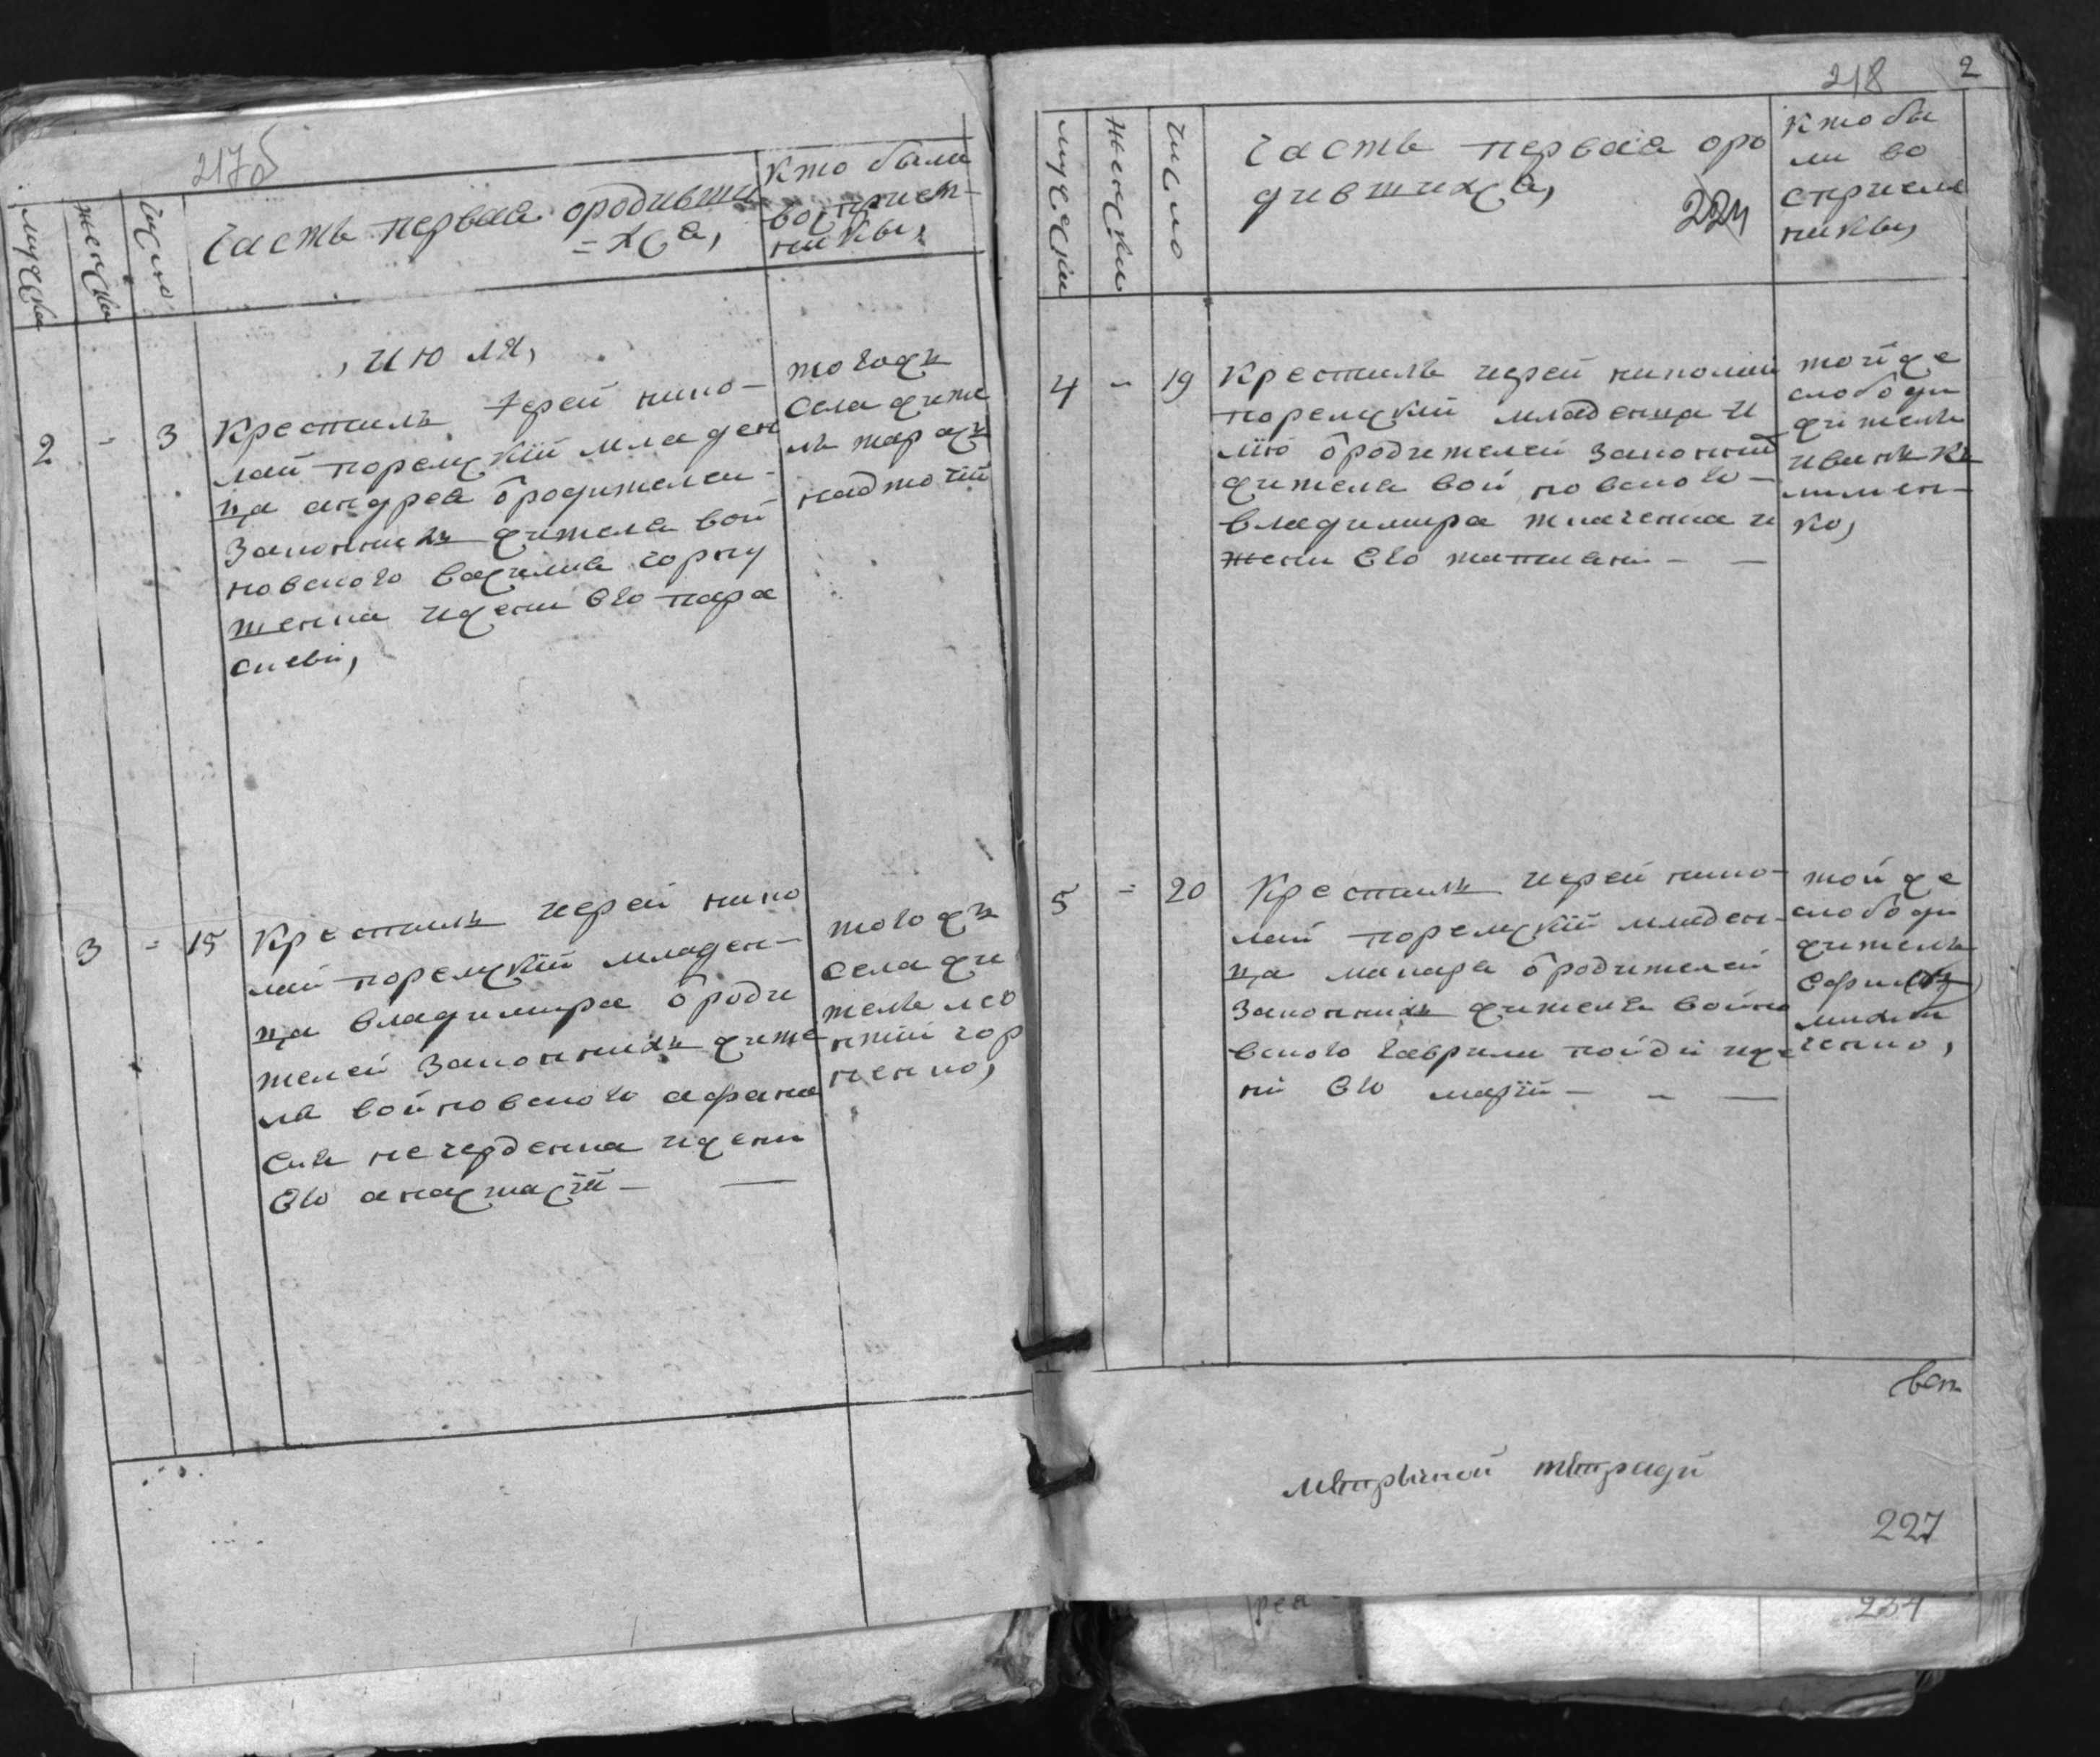 217б
мужеска
женска
число
Часть первая ородивши
=хся,
кто были
восприем-
ники,
, июля,
2 - 3
Крестилъ Іерей нико-
лай порецкій младен
ца андрея ѿ родителей
законнихъ жителя вой
новского василия горну
женни
сиеви,
тогожъ
села жите
ль тарасъ
надточій
3 - 15
Крестилъ иерей нико
лай порецкій младен-
ца владимира ѿ роди
телей законнихъ жите
ля войновского афана
сия нечерденка ижени
его анастасіи -
тогожъ
села жи
тель лео
нтій гор
ненко,
218
2
мужеска
женска
число
Часть первая оро
дившихся,
224
кто бы
ли во
сприем
ники,
4 - 19
Крестилъ иерей николай
порецкий младенца И
лию ѿ родителей законних
жителя войновского
владимира ткаченка и
жени его татияни -
тойже
слободи
житель
иванъ к
лимен-
ко,
5 - 20
Крестилъ иерей нико-
лай порецкій младен-
ца макара ѿ родителей
законнихъ жителя войно
вского гаврили пойди иже
ни его маріи -
тойже
слободи
житель
ченко,
метрычной тетради
227
234